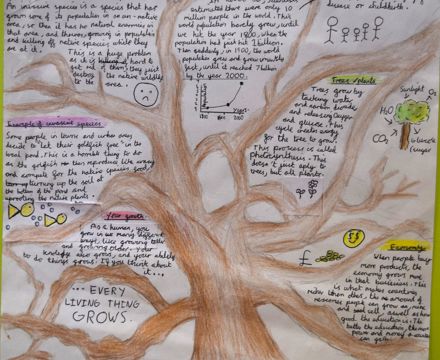 An invasive species is a species that has
grown some of its population in a non-native
area, so there it has no natural enemies in
that area, and thrives, growing in population
and killing off native species while they
are at it.
This is a huge problem
as it is hard to
get rid of them; they just
destroy the native wildlife
in the area.
estimated there were only 10
million people in the world. This
world population barely grew, until
we hit the year 1800, when the
population had just hit 1 billion.
Then suddenly, in 1900, the world
population grew and grew unusually
fast, until it reached 7 billion
by the year 2000.
disease or childbirth.
Trees + plants
Trees grow by
taking water
and carbon dioxide,
and releasing oxygen
and glucose. This
cycle creates energy
for the tree to grow.
This process is called
photosynthesis. This
doesn't just apply to
trees, but all plants.
Sunlight
O₂
H₂O
CO₂
Glucose
(sugar)
Example of invasive species
Some people in towns and urban areas
decide to let their goldfish "go" in the
local pond. This is a horrible thing to do
as the goldfish in turn reproduce like crazy
and compete for the native species' food,
turning up the soil at
the bottom of the pond and
uprooting the native plants.
Your growth
As a human, you
grow in so many different
ways, like growing taller
and growing older. Your
knowledge also grows, and your ability
to do things grows. If you think about
it...
... EVERY
LIVING THING
GROWS.
Economy
When people buy
more products, the
economy grows more
in that business. This
is what makes countries
richer than others, the amount of
resources people can grow or mine
and sell, as well as how
good the education is. The
better the education, the more
power and money a
can gain.
£